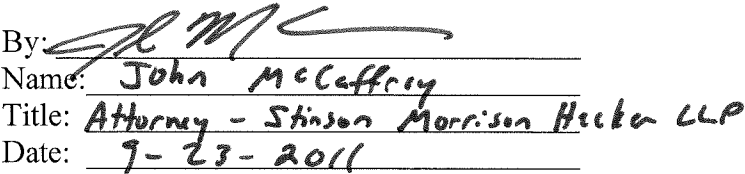 By:
Name: John McCaffrey
Title: Attorney - Stinson Morrison Hecker LLP
Date: 9-23-2011